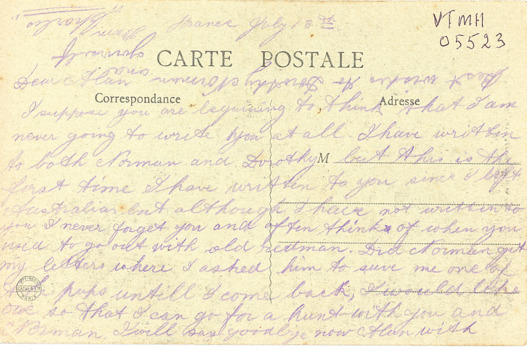 France July 18th
VTMH
05523
CARTE POSTALE
Dear Alan
Correspondance
Adresse
I suppose you are beginning to think that I am
never going to write you at all. I have writtin
to both Norman and Dorothy but this is the
M
first time I have writtin to you since I left
Australia but although I have not writtin to
you I never forget you and often think of when you
used to go out with old redman. Did Norman get
my letters where I asked him to save me one of
pups untill I come back, I would like
one so that I can go for a hunt with you and
Norman, I will say goodbye now Alan with
love and
from your
Brother